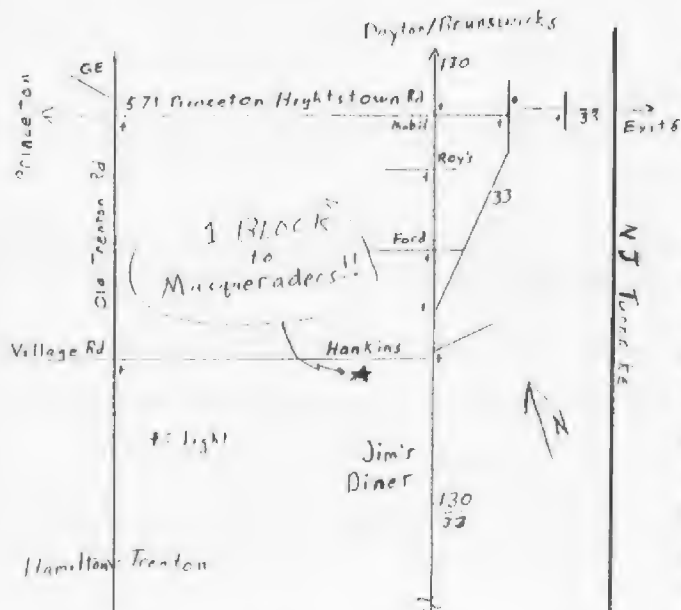 Dayton/Brunswicks
130
GE
Princeton
571 Princeton Hightstown Rd
Mobil
33
Exit 8
Roy's
33
Old Trenton Rd
1 BLOCK
to
Masqueraders!!
Ford
NJ Turnpike
Village Rd
Hankins
N
= light
Jim's
Diner
130
33
Hamilton-Trenton